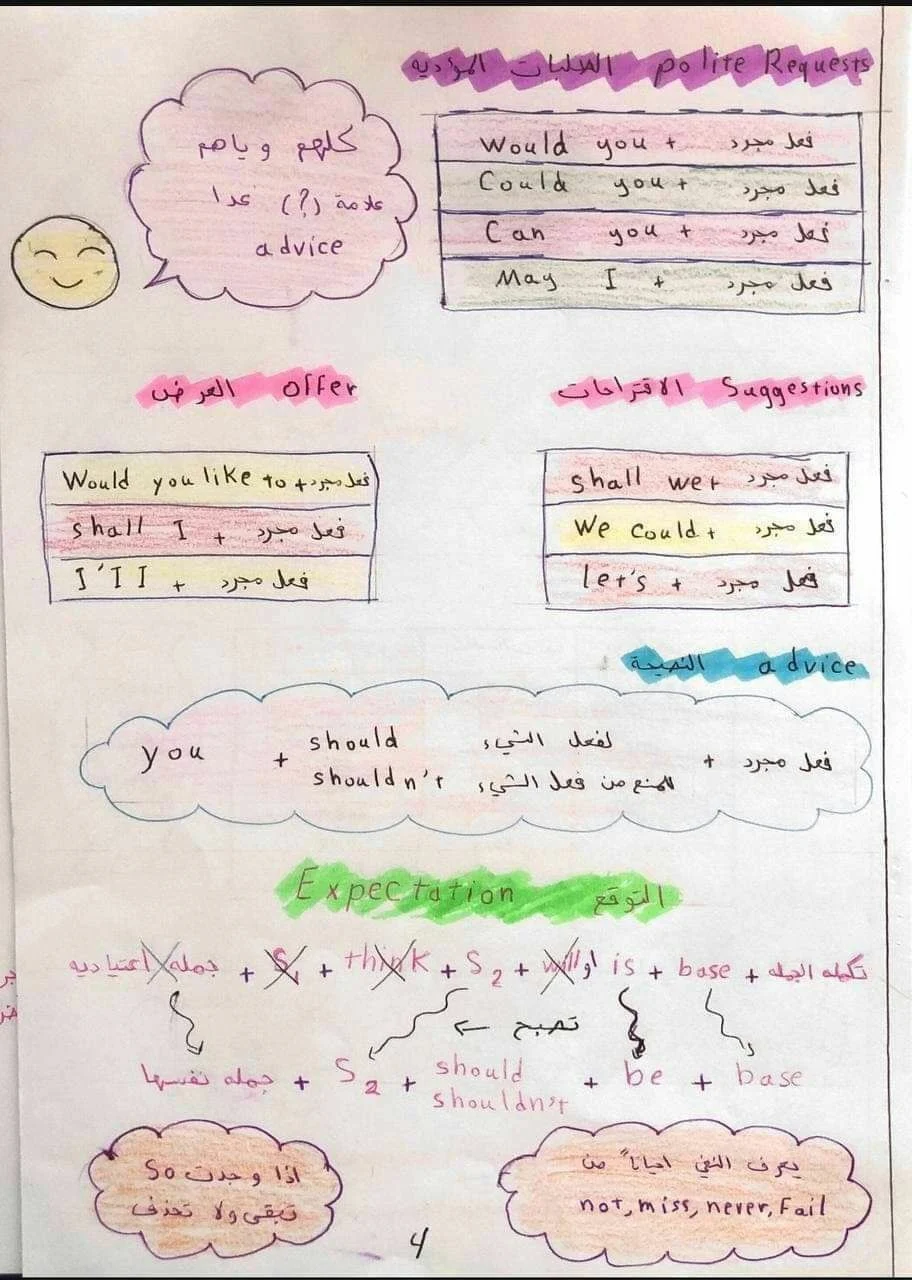 الطلبات المؤدبه polite Requests
Would you + فعل مجرد
Could you + فعل مجرد
Can you + فعل مجرد
May I + فعل مجرد
كلهم وياهم
علامة (?) عدا
advice
الاقتراحات Suggestions
shall we + فعل مجرد
We could + فعل مجرد
let's + فعل مجرد
العرض offer
Would you like to + فعل مجرد
shall I + فعل مجرد
I'II + فعل مجرد
النصيحة advice
you + should لفعل الشيء + فعل مجرد
shouldn't للمنع من فعل الشيء
Expectation التوقع
جمله اعتياديه + S1 + think + S2 + will او is + base + تكمله الجمله
تصبح
جمله نفسها + S2 + should + be + base
shouldn't
يعرف النفي احياناً من
not, miss, never, Fail
اذا وجدت so
تبقى ولا تحذف
4